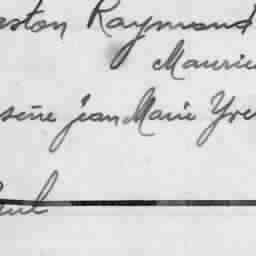 eston Raymond
Mauric
sène Jean Marie Yve
Paul